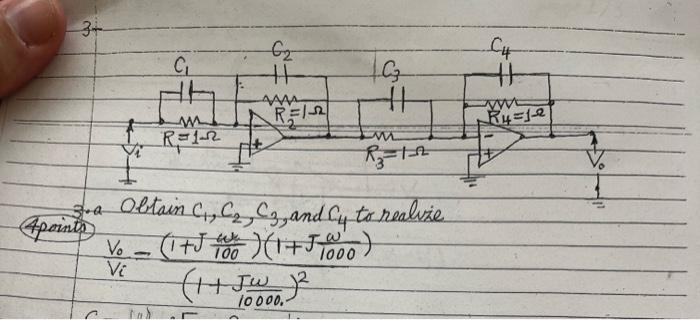 3-
C2
C4
C1
C3
R2=1Ω
R4=1Ω
R1=1Ω
R3=1Ω
Vi
Vo
3.a Obtain C1, C2, C3, and C4 to realize
4 points
Vo/Vi = (1+J ω/100)(1+J ω/1000) / (1+ Jω/10000.)²